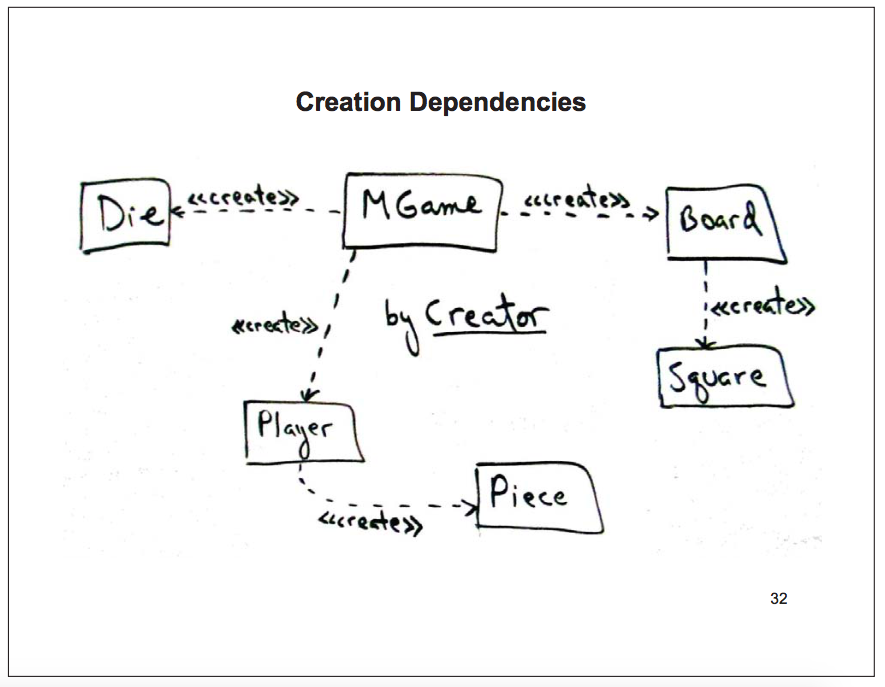 Creation Dependencies
Die
<<create>>
MGame
<<create>>
Board
<<create>>
by Creator
<<create>>
Square
Player
Piece
<<create>>
32